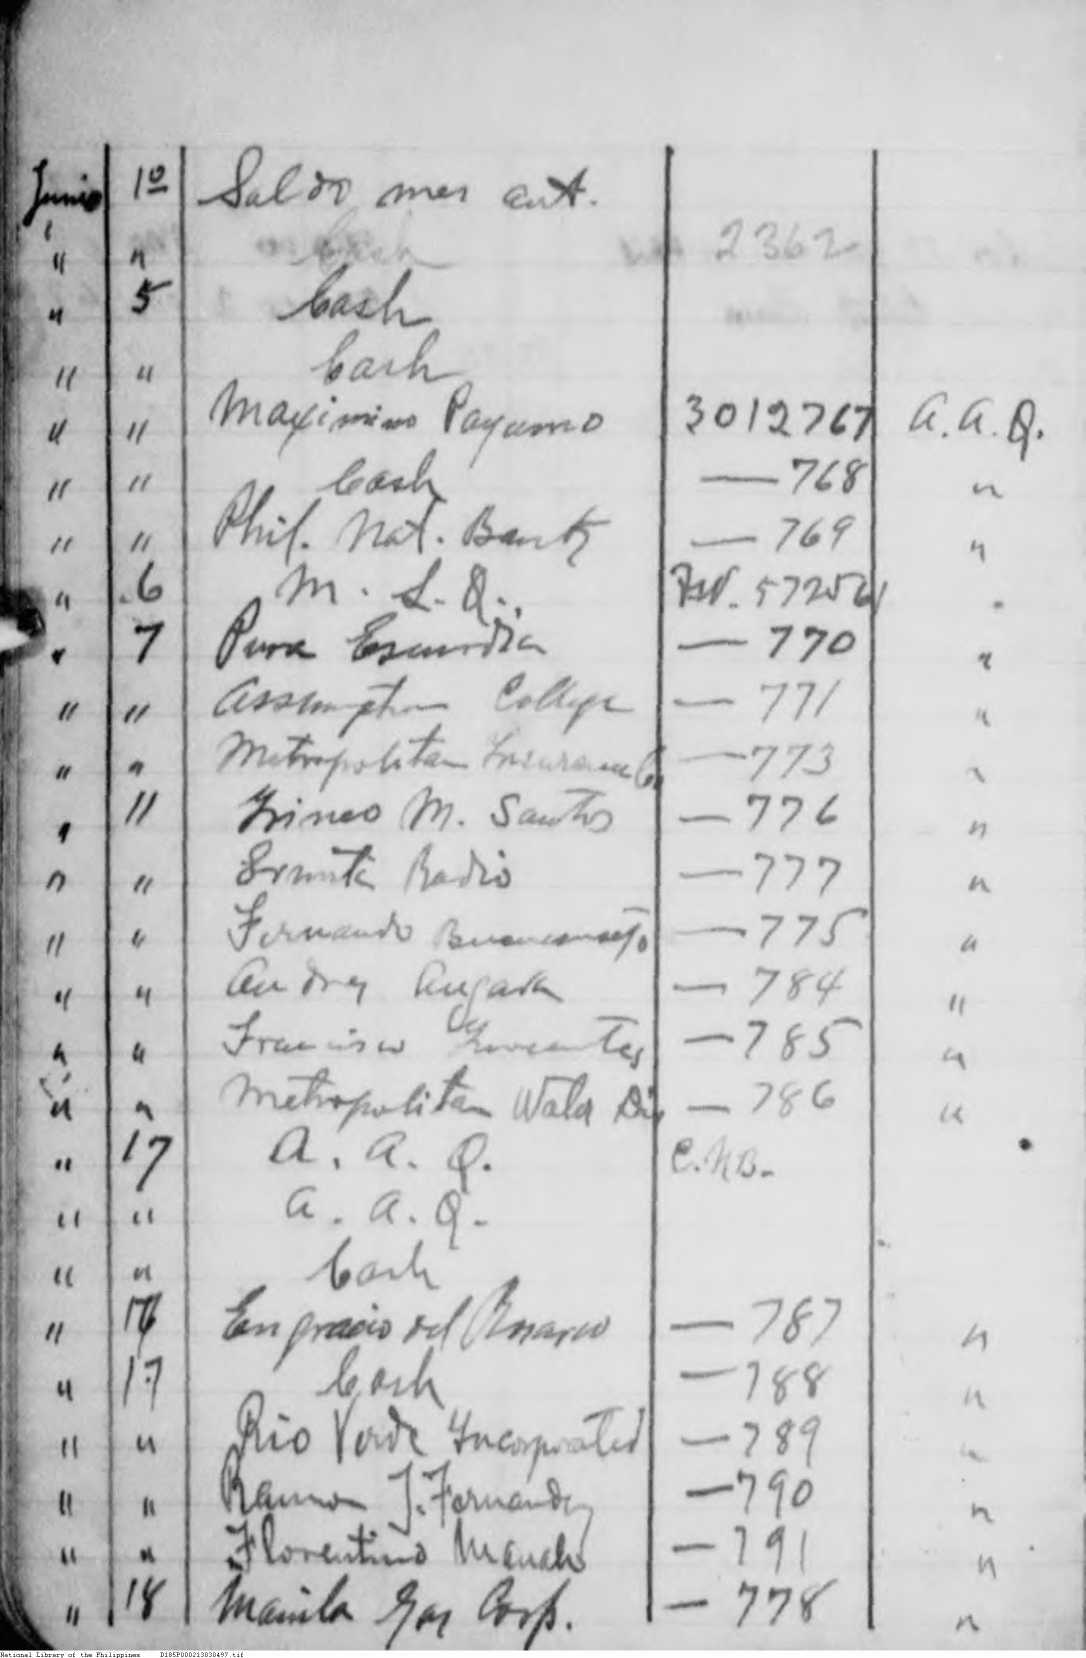 Junio 1º Saldo mes ant.
" " Cash 2362
" 5 Cash
" " Cash
" " Maximino Payumo 3012767 A.A.Q.
" " Cash — 768 "
" " Phil. Nat. Bank — 769 "
" 6 M. L. Q. 572561 "
" 7 Pura Escurdia — 770 "
" " Assumption College — 771 "
" " Metropolitan Insurance Co — 773 "
" 11 Irineo M. Santos — 776 "
" " Ermita Radio — 777 "
" " Fernando — 775 "
" " Andres Angara — 784 "
" " Francisco — 785 "
" " Metropolitan Water Dis — 786 "
" 17 A. A. Q. C.N.B.
" " A. A. Q.
" " Cash
" 16 Engracio del Rosario — 787 "
" 17 Cash — 788 "
" " Rio Verde Incorporated — 789 "
" " Ramon J. Fernandez — 790 "
" " Florentino — 791 "
" 18 Manila Gas Corp. — 778 "
National Library of the Philippines D185P000213830497.tif